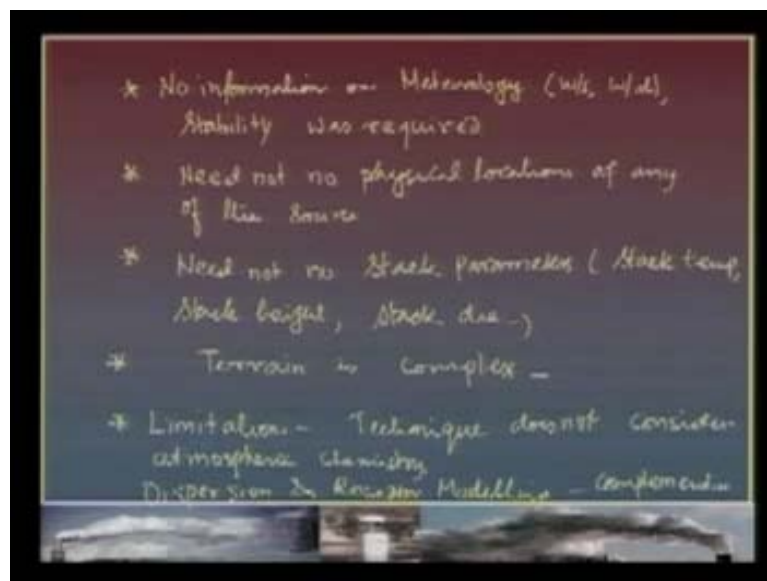 * No information on Meteorology (w/s, w/d),
Stability was required
* Need not no physical locations of any
of the source
* Need not no Stack parameters (Stack temp,
Stack height, Stack dia -)
* Terrain is complex -
* Limitation - Technique does not consider
atmospheric chemistry
Dispersion & Modelling -